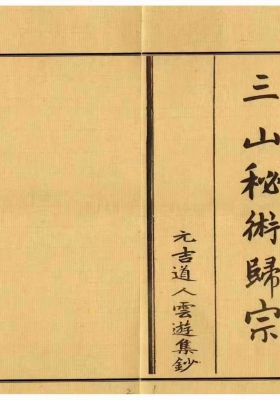 三山秘術歸宗
元吉道人雲遊集鈔